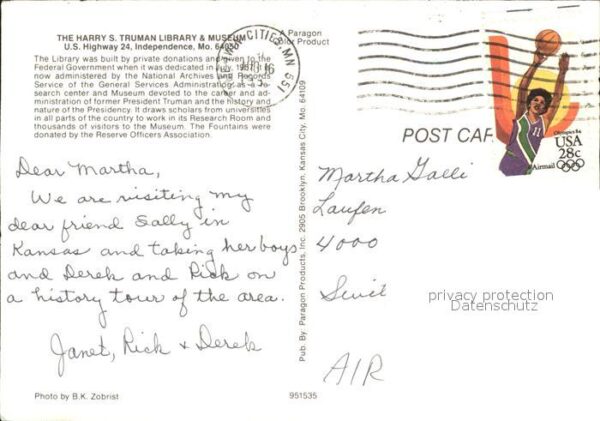 THE HARRY S. TRUMAN LIBRARY & MUSEUM
U.S. Highway 24, Independence, Mo. 64050
The Library was built by private donations and given to the
Federal Government when it was dedicated in July, 1957. It is
now administered by the National Archives and Records
Service of the General Services Administration as a re-
search center and Museum devoted to the career and ad-
ministration of former President Truman and the history and
nature of the Presidency. It draws scholars from universities
in all parts of the country to work in its Research Room and
thousands of visitors to the Museum. The Fountains were
donated by the Reserve Officers Association.
A Paragon
Color Product
TWIN CITIES, MN 551
16
POST CAR
11
Olympics 84
USA
28c
Airmail
Dear Martha,
We are visiting my
dear friend Sally in
Kansas and taking her boys
and Derek and Rick on
a history tour of the area.
Janet, Rick + Derek
Photo by B.K. Zobrist
Pub. By: Paragon Products, Inc. 2905 Brooklyn, Kansas City, Mo. 64109
951535
Martha Galli
Laufen
4000
AIR
privacy protection
Datenschutz